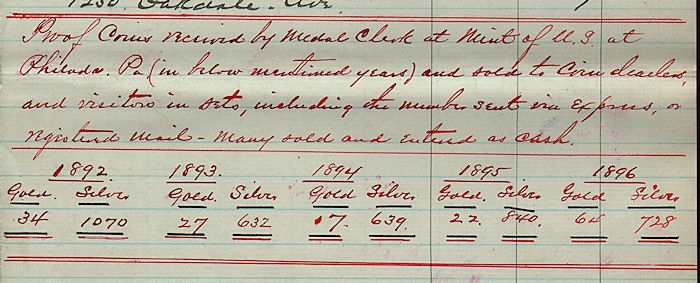 1250, Oakdale. Ave.
Proof Coins received by Medal Clerk at Mint of U.S. at
Philada. Pa (in below mentioned years) and sold to Coin dealers,
and visitors in sets, including the number sent via Express, or
registered mail - many sold and entered as cash.
1892 1893. 1894 1895 1896
Gold. Silver Gold. Silver Gold Silver Gold. Silver Gold Silver
34 1070 27 632 17. 639. 22. 840. 64 728